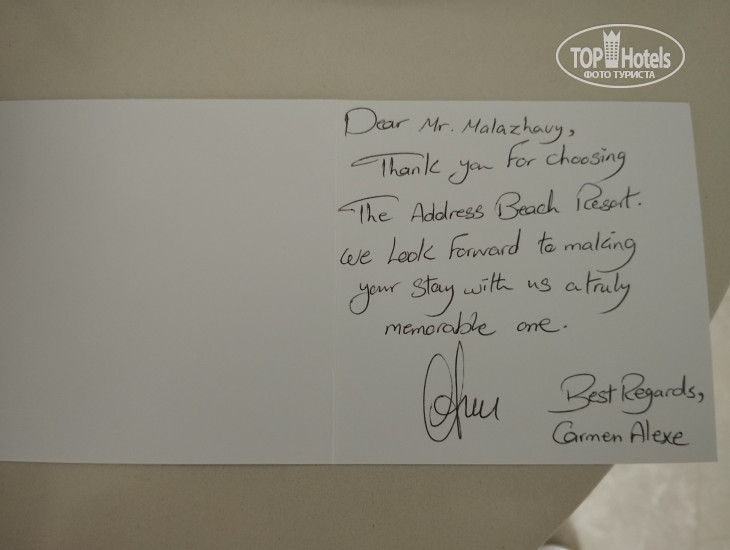 TOP Hotels
ФОТО ТУРИСТА
Dear Mr. Malazhavy,
Thank you For choosing
The Address Beach Resort.
We Look Forward to making
your stay with us a truly
memorable one.
Best Regards,
Carmen Alexe